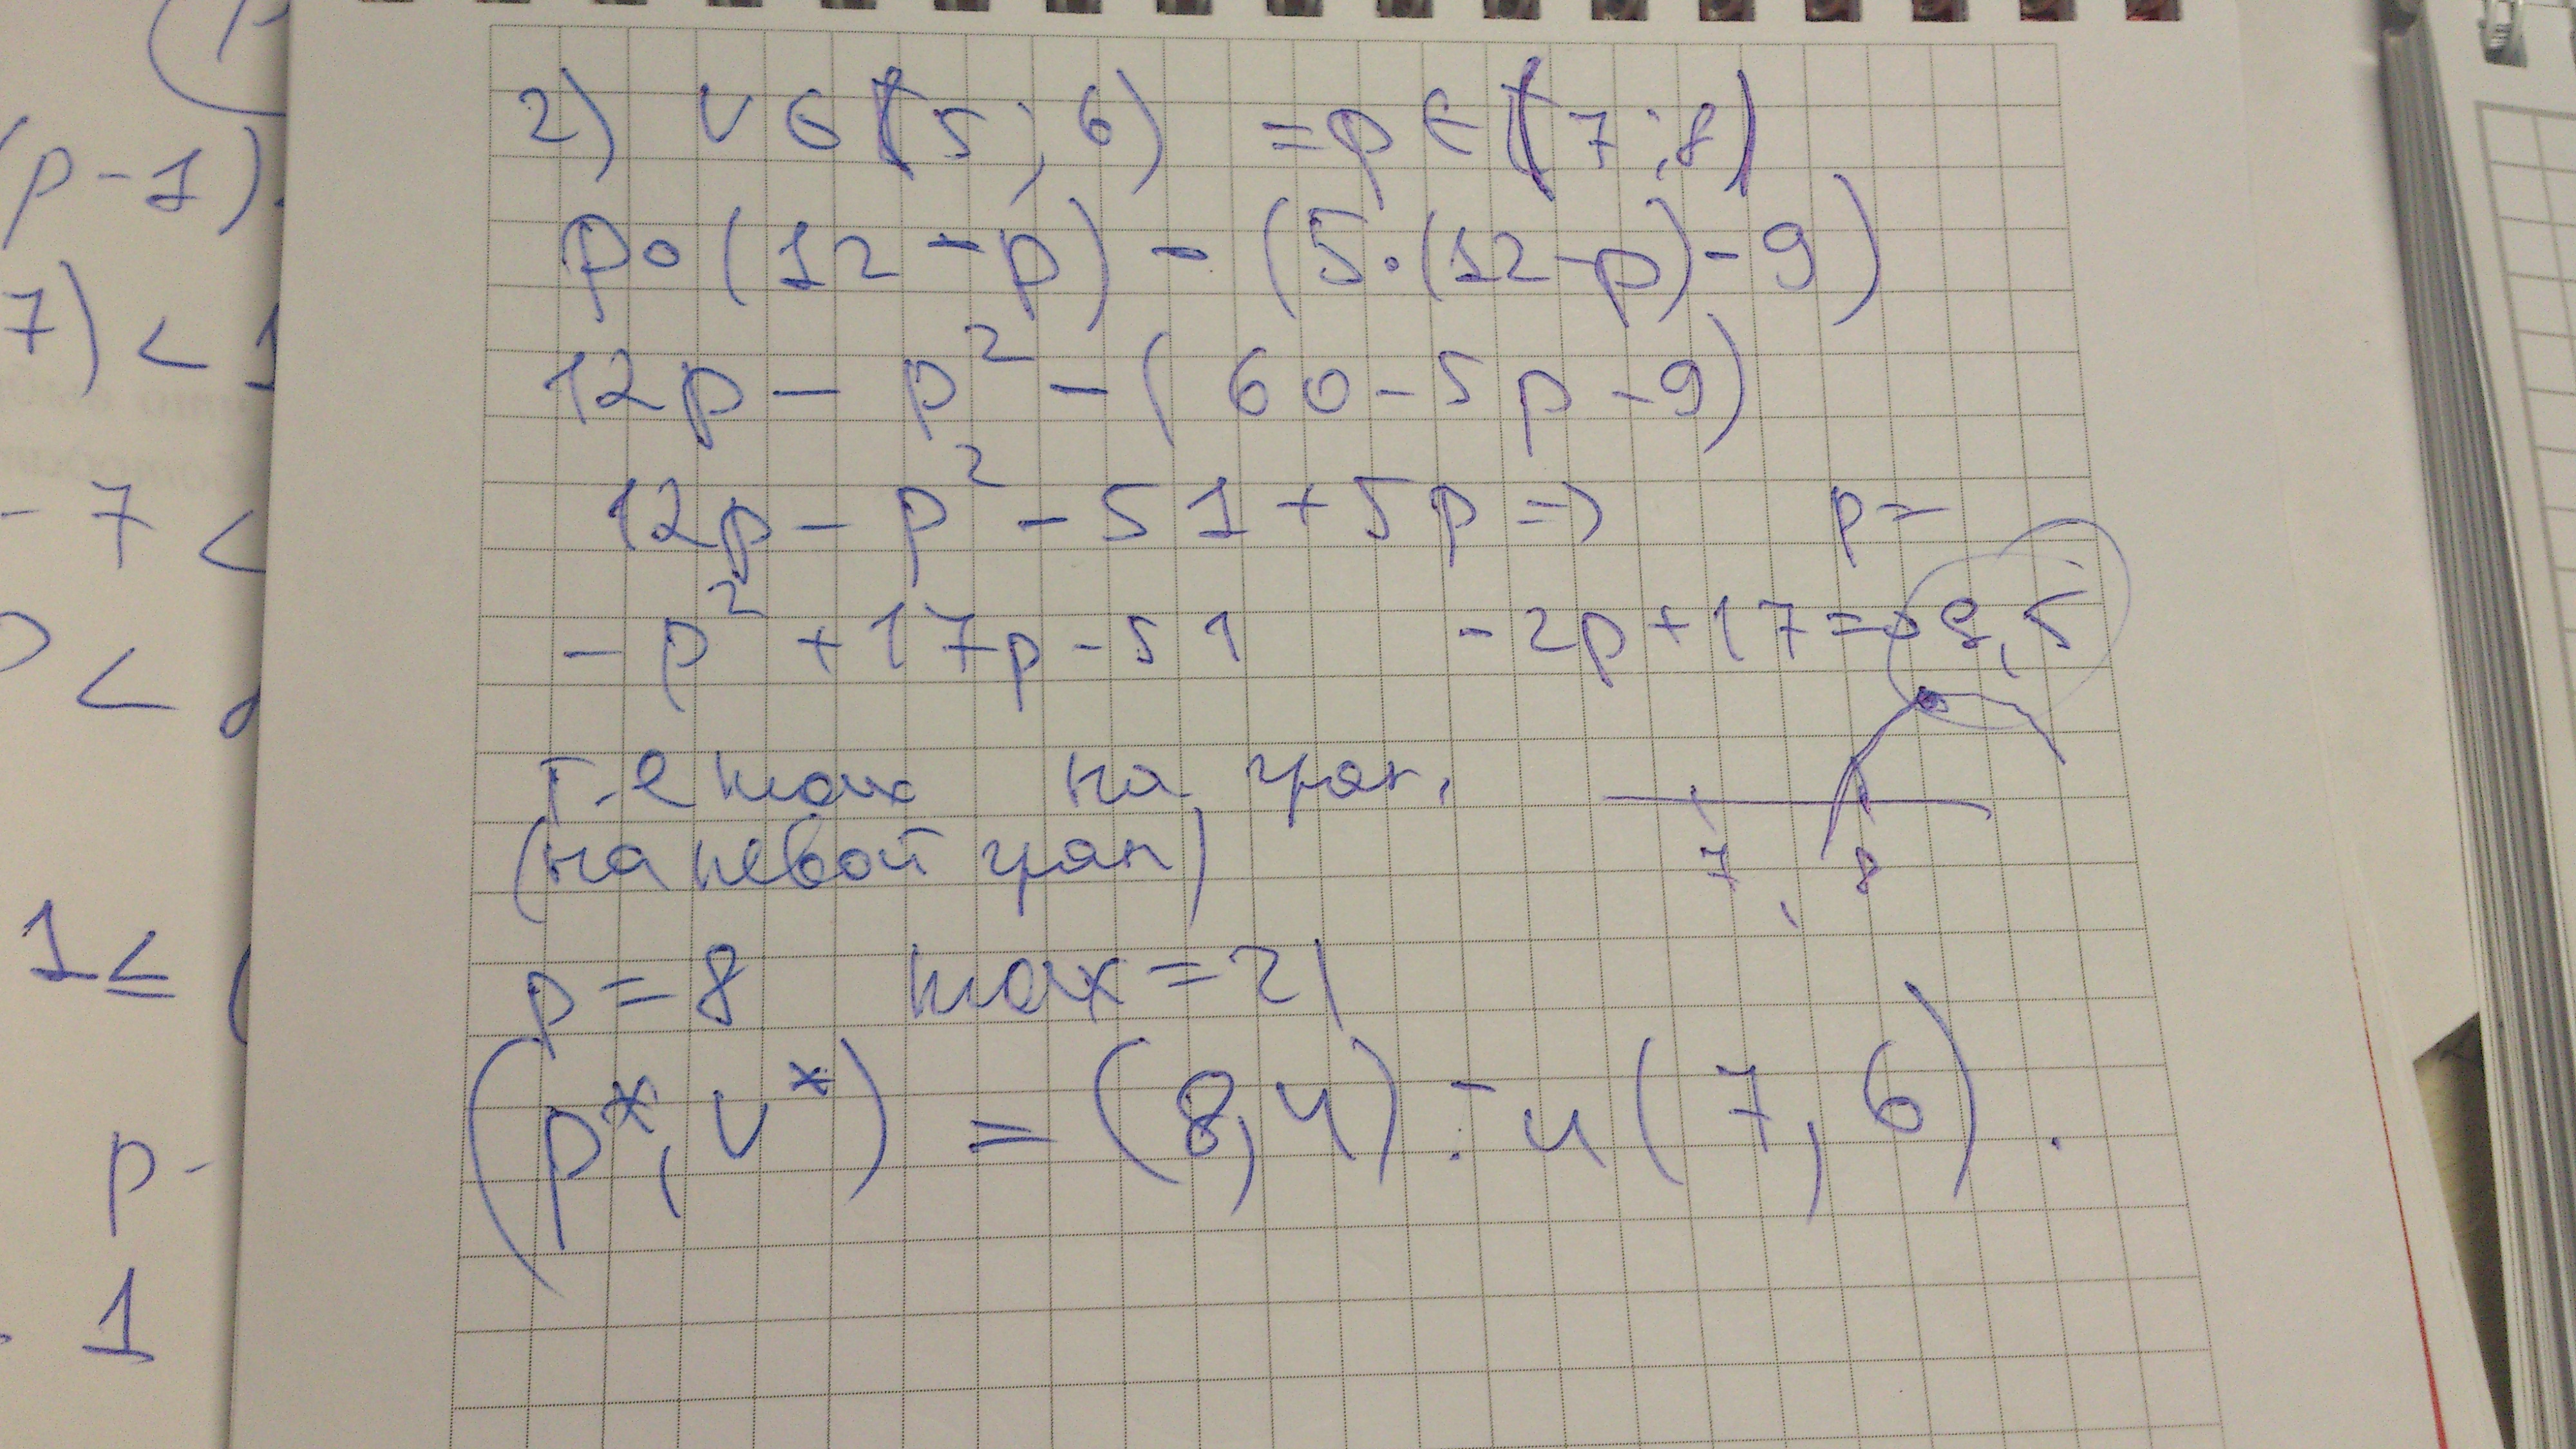 (p-1)
7) < 1
- 7 <
<
1 ≤ (
p -
1
2) v ∈ (5; 6) = p ∈ (7; 8)
p·(12-p) - (5·(12-p)-9)
12p - p² - (60-5p-9)
12p - p² - 51 + 5p => p=
-p² + 17p - 51 -2p+17=> 8,5
т.е max на гран.
(на левой гран)
7 8
p = 8 max = 21
(p*, v*) = (8, 4) и (7, 6).